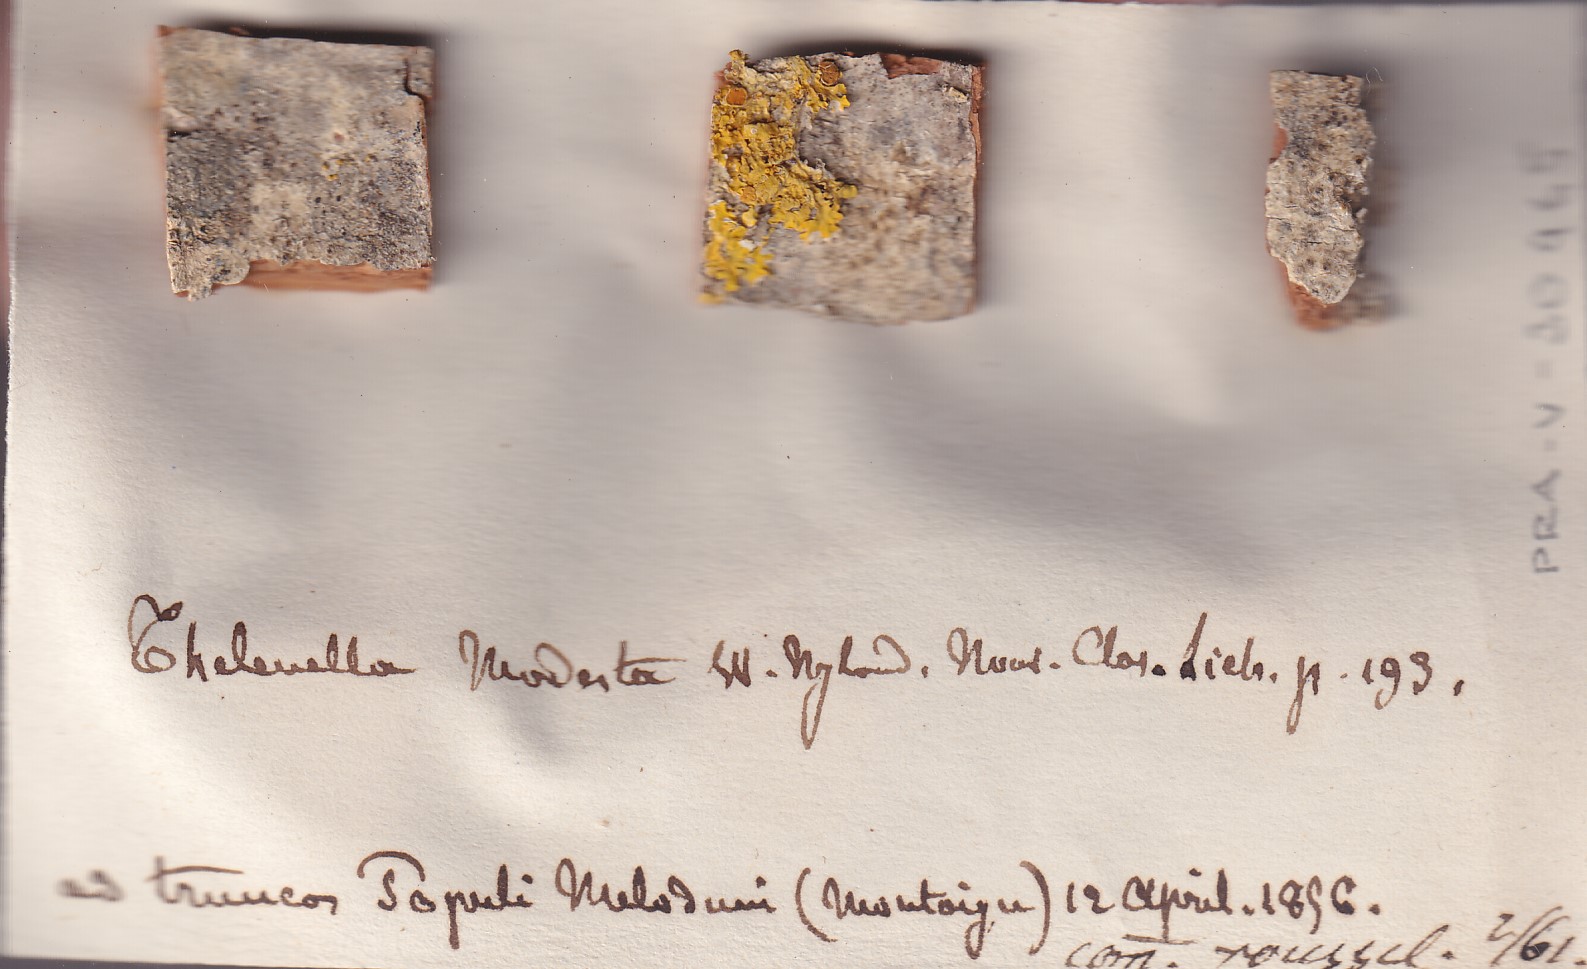 Thelenella Modesta W. Nyland. Nouv. Clas. Lich. p. 193.
ad truncos Populi Meloduni (Montaigu) 12 April. 1856.
com. roussel. 2/61.
PRA-V-